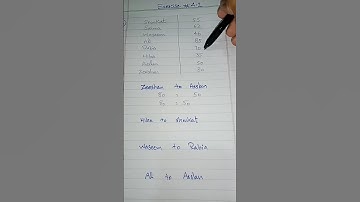 Exercise no 4.2
Shoukat 55
65
Waseem 40
Ali 85
Rabia 70
Hiba
Arslan 50
Zeeshan 80
Zeeshan to Arslan
80 : 50
8 : 50
Hiba to Shoukat
Waseem to Rabia
Ali to Arslan